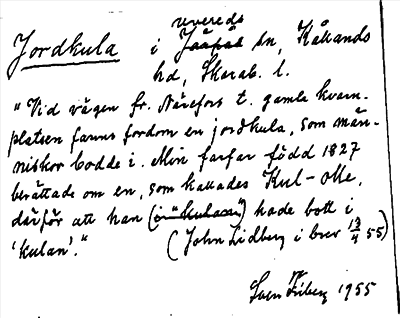 uvereds
Jordkula i Jääpäl sn, Kållands
hd, Skarab. l.
"Vid vägen fr. Nårefors t. gamla kvarn-
platsen fanns fordom en jordkula, som män-
niskor bodde i. Min farfar född 1827
berättade om en, som kallades Kul-Olle,
därför att han (i "kulan") hade bott i
'kulan'."
(John Lidberg i brev 13/4 55)
Sven Friberg 1955